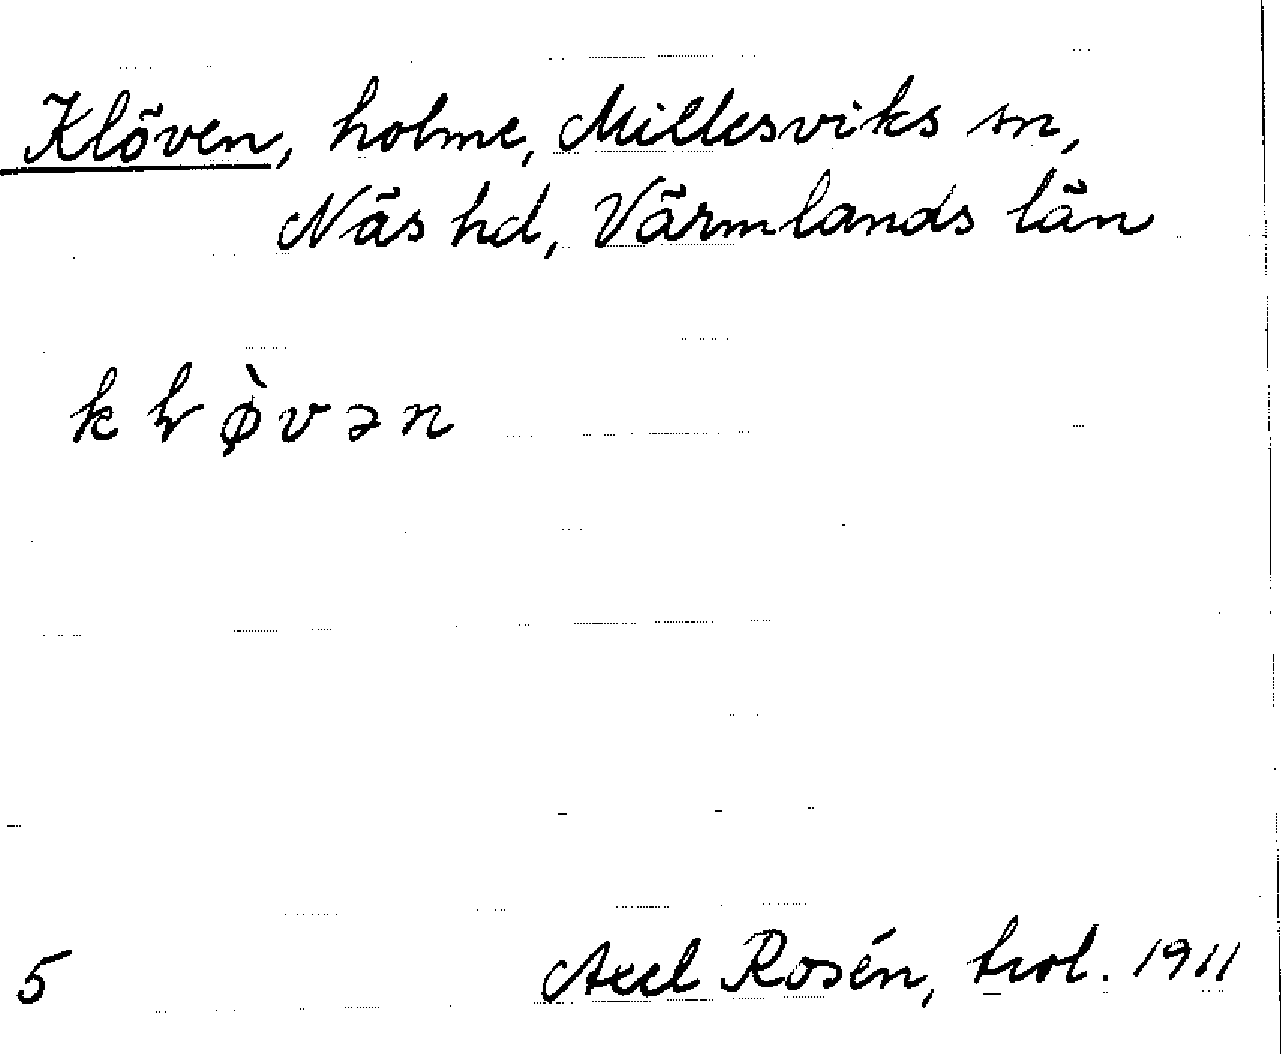 Klöven, holme, Millesviks sn,
Näs hd, Värmlands län
k ɫ ø̀ v ə n
5 Axel Rosén, trol. 1911